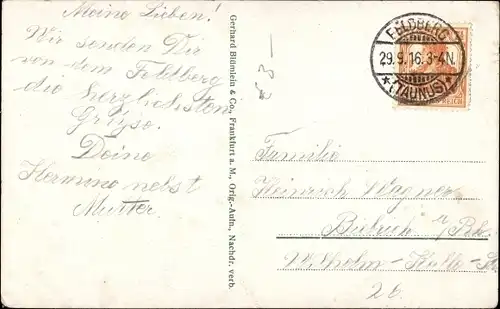 Meine Lieben!
Wir senden Dir
von dem Feldberg
die herzlichsten
Grüsse.
Deine
Hermine nebst
Mutter.
Gerhard Blümlein & Co., Frankfurt a. M., Orig.-Aufn., Nachdr. verb.
FELDBERG
29.9.16. 3-4N.
* (TAUNUS) *
REICH
Familie
Heinrich Wagner
Biebrich a/Rh.
Wilhelm-Kalle-St
26.